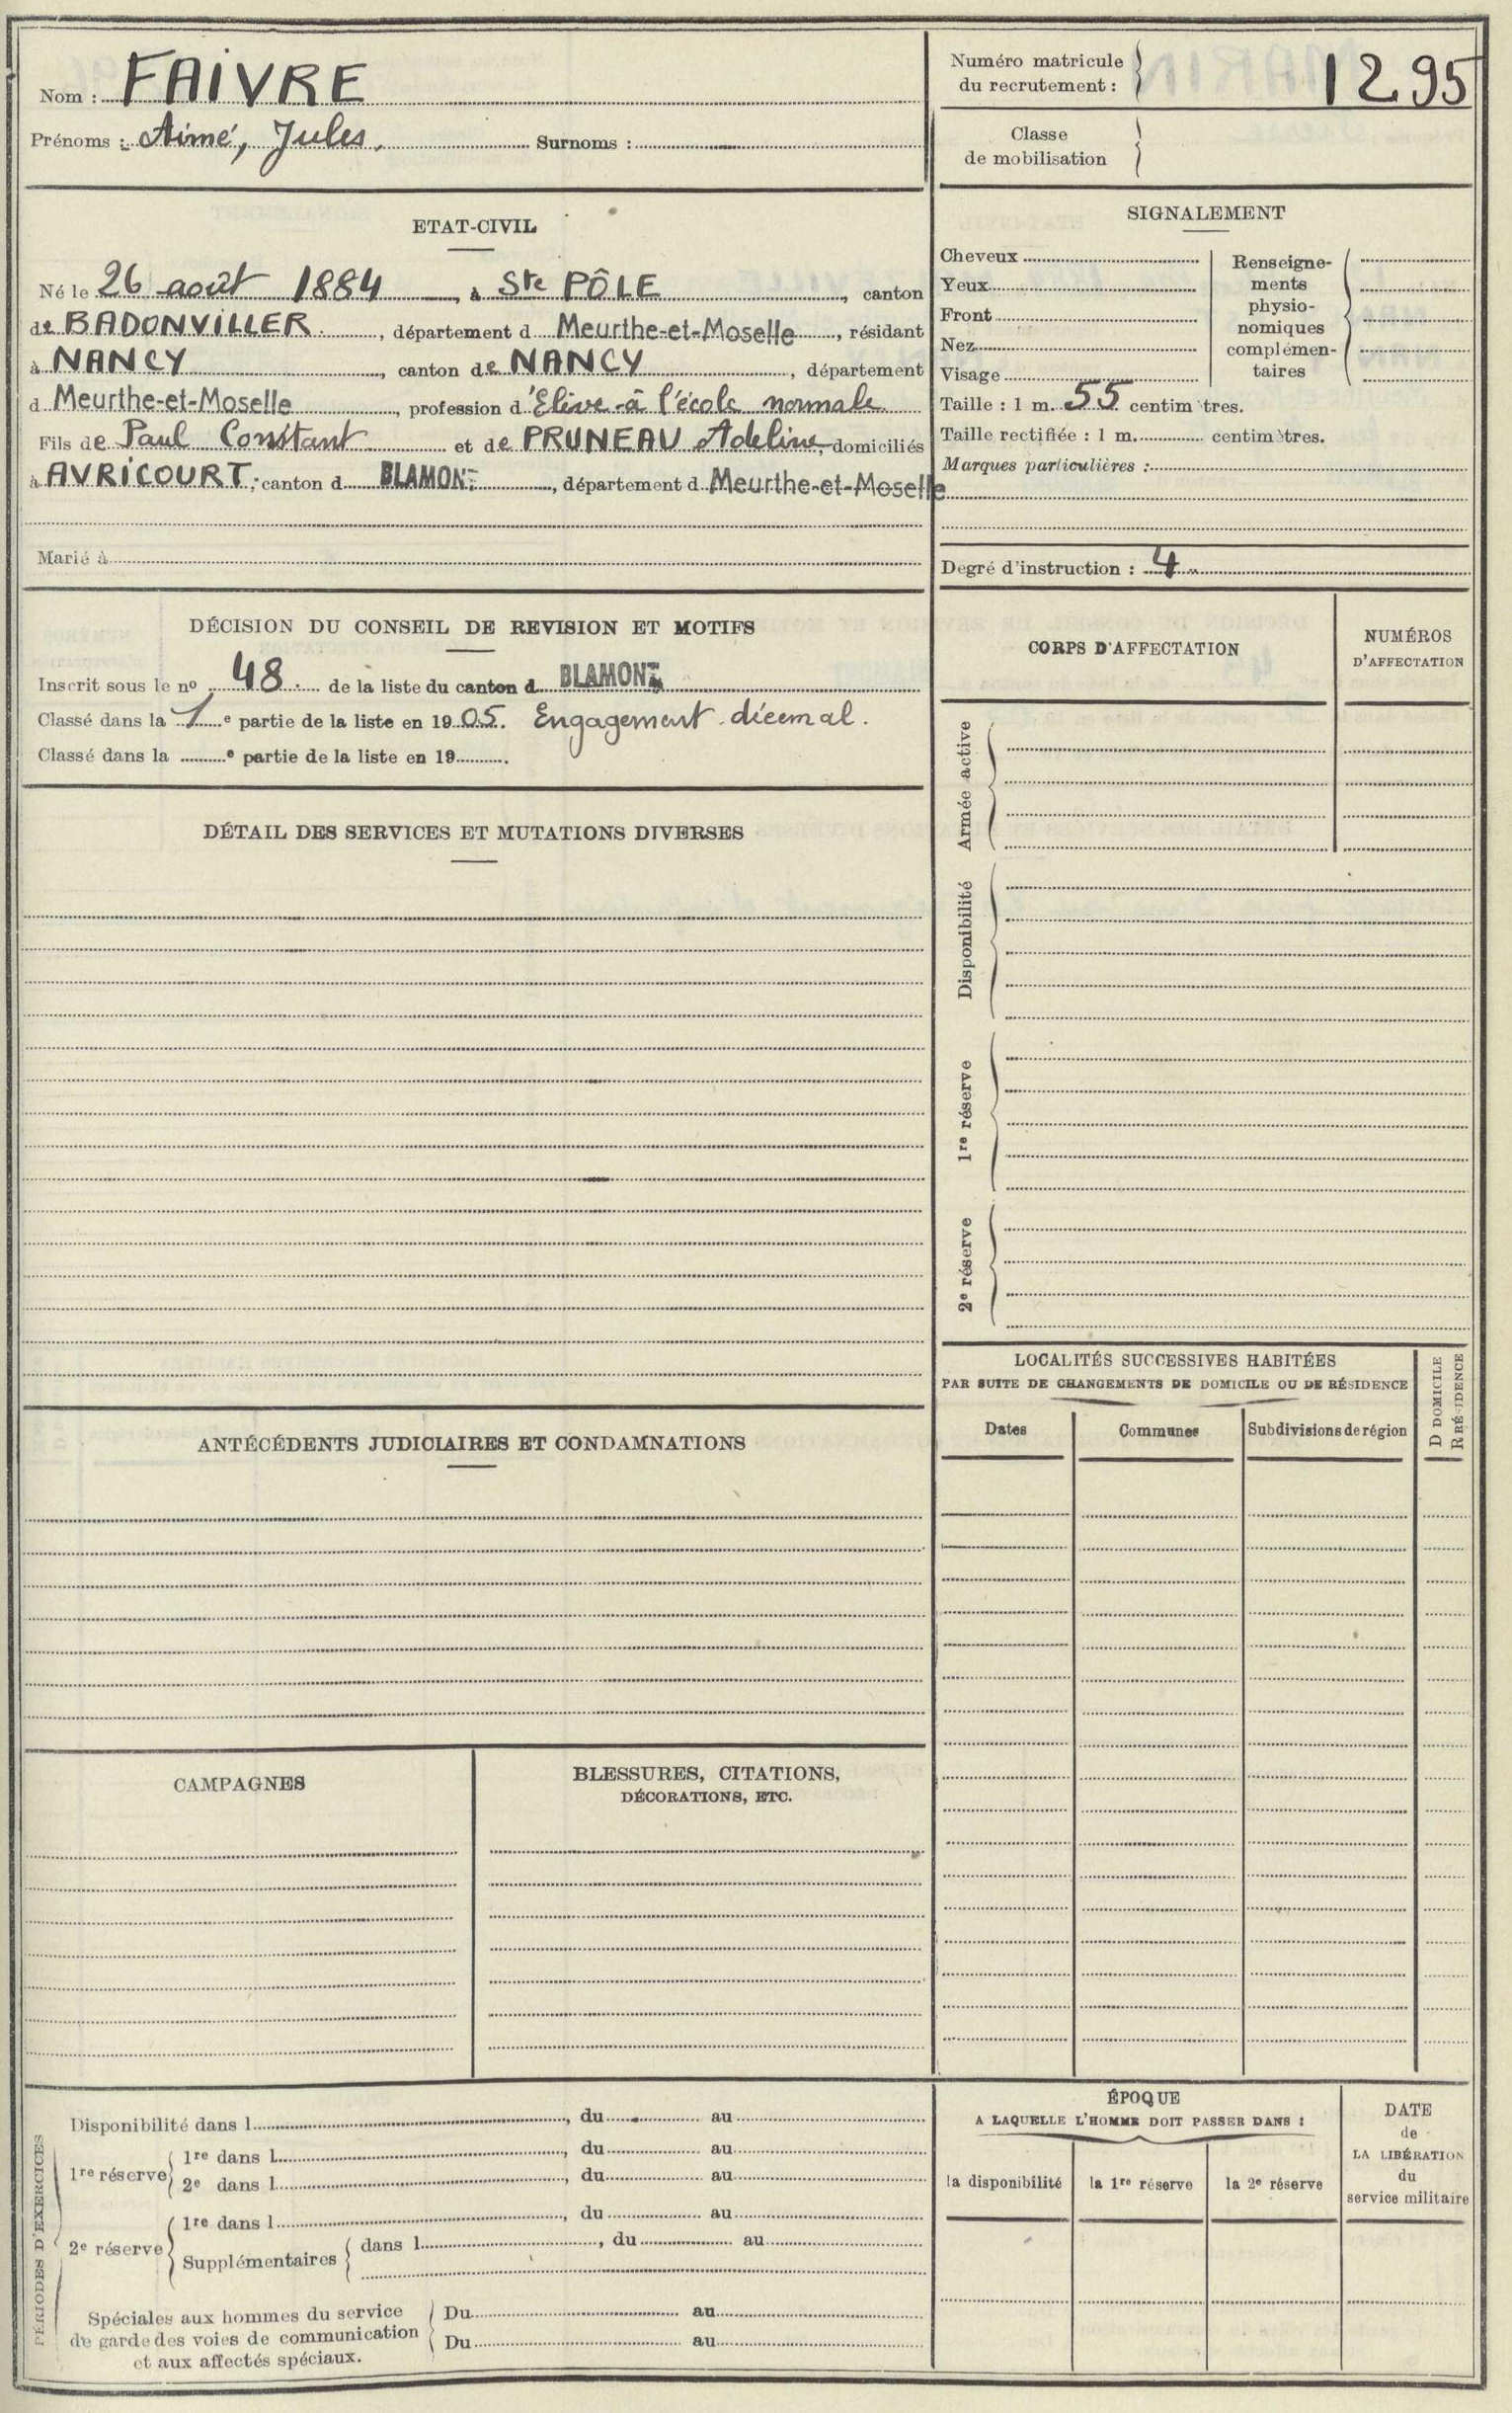 Nom : FAIVRE
Prénoms : Aimé, Jules. Surnoms :
Numéro matricule du recrutement : 1295
Classe de mobilisation
ETAT-CIVIL
Né le 26 août 1884, à Ste PÔLE, canton
de BADONVILLER, département d Meurthe-et-Moselle, résidant
à NANCY, canton de NANCY, département
d Meurthe-et-Moselle, profession d'Elève à l'école normale
Fils de Paul Constant et de PRUNEAU Adeline, domiciliés
à AVRICOURT, canton d BLAMONT, département d Meurthe-et-Moselle
Marié à
SIGNALEMENT
Cheveux
Yeux
Front
Nez
Visage
Renseigne-
ments
physio-
nomiques
complémen-
taires
Taille : 1 m. 55 centimètres.
Taille rectifiée : 1 m. centimètres.
Marques particulières :
Degré d'instruction : 4
DÉCISION DU CONSEIL DE REVISION ET MOTIFS
Inscrit sous le nº 48 de la liste du canton d BLAMONT
Classé dans la 1e partie de la liste en 1905. Engagement décemal.
Classé dans la e partie de la liste en 19
DÉTAIL DES SERVICES ET MUTATIONS DIVERSES
CORPS D'AFFECTATION
NUMÉROS
D'AFFECTATION
Armée active
Disponibilité
1re réserve
2e réserve
ANTÉCÉDENTS JUDICIAIRES ET CONDAMNATIONS
LOCALITÉS SUCCESSIVES HABITÉES
PAR SUITE DE CHANGEMENTS DE DOMICILE OU DE RÉSIDENCE
D DOMICILE
R RÉSIDENCE
Dates
Communes
Subdivisions de région
CAMPAGNES
BLESSURES, CITATIONS,
DÉCORATIONS, ETC.
PÉRIODES D'EXERCICES
Disponibilité dans l, du au
1re réserve
1re dans l, du au
2e dans l, du au
2e réserve
1re dans l, du au
Supplémentaires dans l, du au
Spéciales aux hommes du service
de garde des voies de communication
et aux affectés spéciaux.
Du au
Du au
ÉPOQUE
A LAQUELLE L'HOMME DOIT PASSER DANS :
la disponibilité
la 1re réserve
la 2e réserve
DATE
de
LA LIBÉRATION
du
service militaire